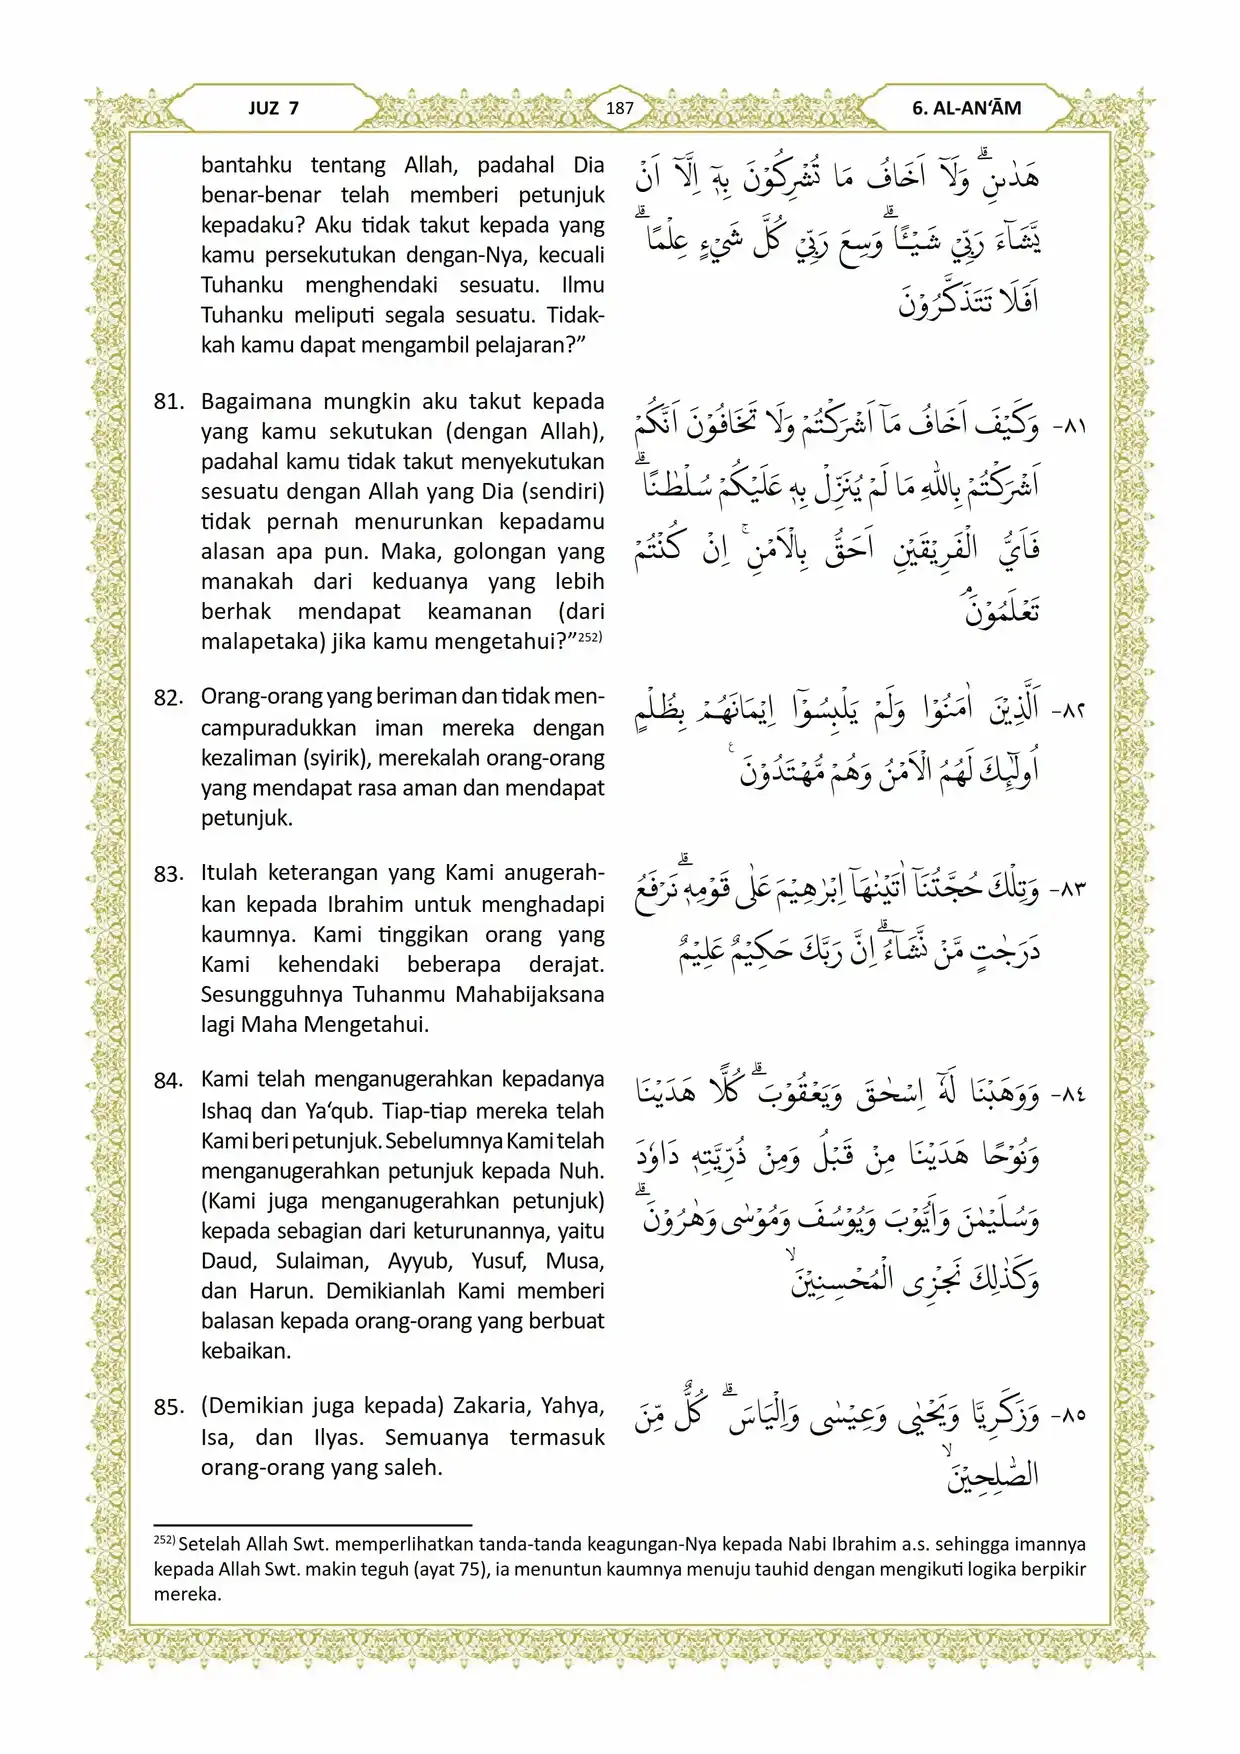 JUZ 7
187
6. AL-AN‘ĀM
bantahku tentang Allah, padahal Dia
benar-benar telah memberi petunjuk
kepadaku? Aku tidak takut kepada yang
kamu persekutukan dengan-Nya, kecuali
Tuhanku menghendaki sesuatu. Ilmu
Tuhanku meliputi segala sesuatu. Tidak-
kah kamu dapat mengambil pelajaran?”
هَدٰىنِۗ وَلَآ اَخَافُ مَا تُشْرِكُوْنَ بِهٖٓ اِلَّآ اَنْ
يَّشَاۤءَ رَبِّيْ شَيْـًٔاۗ وَسِعَ رَبِّيْ كُلَّ شَيْءٍ عِلْمًاۗ
اَفَلَا تَتَذَكَّرُوْنَ
81. Bagaimana mungkin aku takut kepada
yang kamu sekutukan (dengan Allah),
padahal kamu tidak takut menyekutukan
sesuatu dengan Allah yang Dia (sendiri)
tidak pernah menurunkan kepadamu
alasan apa pun. Maka, golongan yang
manakah dari keduanya yang lebih
berhak mendapat keamanan (dari
malapetaka) jika kamu mengetahui?”²⁵²⁾
٨١- وَكَيْفَ اَخَافُ مَآ اَشْرَكْتُمْ وَلَا تَخَافُوْنَ اَنَّكُمْ
اَشْرَكْتُمْ بِاللّٰهِ مَا لَمْ يُنَزِّلْ بِهٖ عَلَيْكُمْ سُلْطٰنًاۗ
فَاَيُّ الْفَرِيْقَيْنِ اَحَقُّ بِالْاَمْنِۚ اِنْ كُنْتُمْ
تَعْلَمُوْنَۘ
82. Orang-orang yang beriman dan tidak men-
campuradukkan iman mereka dengan
kezaliman (syirik), merekalah orang-orang
yang mendapat rasa aman dan mendapat
petunjuk.
٨٢- اَلَّذِيْنَ اٰمَنُوْا وَلَمْ يَلْبِسُوْٓا اِيْمَانَهُمْ بِظُلْمٍ
اُولٰۤىِٕكَ لَهُمُ الْاَمْنُ وَهُمْ مُّهْتَدُوْنَ ࣖ
83. Itulah keterangan yang Kami anugerah-
kan kepada Ibrahim untuk menghadapi
kaumnya. Kami tinggikan orang yang
Kami kehendaki beberapa derajat.
Sesungguhnya Tuhanmu Mahabijaksana
lagi Maha Mengetahui.
٨٣- وَتِلْكَ حُجَّتُنَآ اٰتَيْنٰهَآ اِبْرٰهِيْمَ عَلٰى قَوْمِهٖۗ نَرْفَعُ
دَرَجٰتٍ مَّنْ نَّشَاۤءُۗ اِنَّ رَبَّكَ حَكِيْمٌ عَلِيْمٌ
84. Kami telah menganugerahkan kepadanya
Ishaq dan Ya‘qub. Tiap-tiap mereka telah
Kami beri petunjuk. Sebelumnya Kami telah
menganugerahkan petunjuk kepada Nuh.
(Kami juga menganugerahkan petunjuk)
kepada sebagian dari keturunannya, yaitu
Daud, Sulaiman, Ayyub, Yusuf, Musa,
dan Harun. Demikianlah Kami memberi
balasan kepada orang-orang yang berbuat
kebaikan.
٨٤- وَوَهَبْنَا لَهٗٓ اِسْحٰقَ وَيَعْقُوْبَۗ كُلًّا هَدَيْنَا
وَنُوْحًا هَدَيْنَا مِنْ قَبْلُ وَمِنْ ذُرِّيَّتِهٖ دَاوٗدَ
وَسُلَيْمٰنَ وَاَيُّوْبَ وَيُوْسُفَ وَمُوْسٰى وَهٰرُوْنَۗ
وَكَذٰلِكَ نَجْزِى الْمُحْسِنِيْنَۙ
85. (Demikian juga kepada) Zakaria, Yahya,
Isa, dan Ilyas. Semuanya termasuk
orang-orang yang saleh.
٨٥- وَزَكَرِيَّا وَيَحْيٰى وَعِيْسٰى وَاِلْيَاسَۗ كُلٌّ مِّنَ
الصّٰلِحِيْنَۙ
²⁵²⁾ Setelah Allah Swt. memperlihatkan tanda-tanda keagungan-Nya kepada Nabi Ibrahim a.s. sehingga imannya
kepada Allah Swt. makin teguh (ayat 75), ia menuntun kaumnya menuju tauhid dengan mengikuti logika berpikir
mereka.